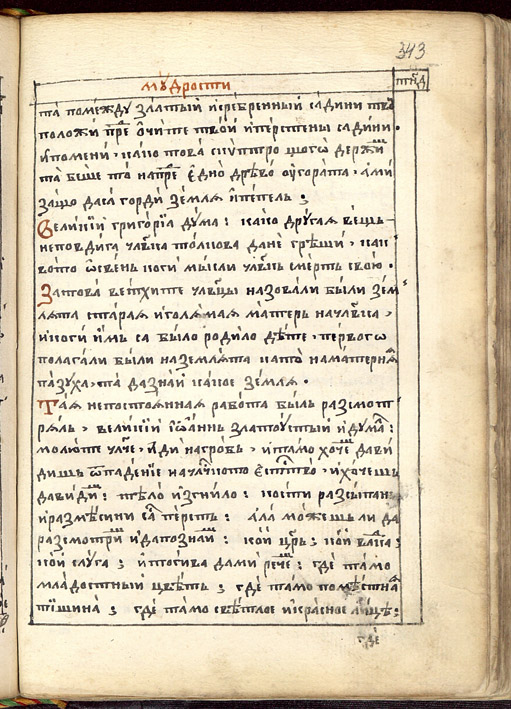 343
мꙋдрости
тн҃д
та помеждꙋ златый исребренный садини твѡ
положи пре ѻчите твои иперстены садини.
ипомени, како това скѵптро щогѡ держи
та быше то напре едно дрѣво оугората. ами
защо дасѧ горди землѧ ипепель;
Великїй григорїа дꙋма: како дрꙋгаѧ вещь
неповдига члвѣка толкова дане грѣши, как
вото ѿвень коги мысли члвкъ смерть свою.
Затова ветхите члвцы назовали были зем
лѧта стараѧ иголѧмаѧ матерь начлвка,
икоги имъ са было родило дѣте, первогѡ
полагали были наземлѧта като наматернѧ
пазꙋха, та дазнаи какое землѧ.
Таѧ непостоѧннаѧ работа быль размот
рѧль, великїй іѡаннь златоꙋстый идꙋма:
молюте члче, иди нагробъ, итамо хоче дави
дишь ѿпаденїе началкото естство, ихочешь
давиди: тѣло изгнило: кости разсыпаны
иразмѣсини са персть: ала можешь ли да
размотри идапознаи: кой црь; кой влка;
кой слꙋга; итогива дами рече: где тамо
младостный цвѣть; где тамо помѣстнаѧ
тишина; где тамо свѣтлое икрасное лице;
где